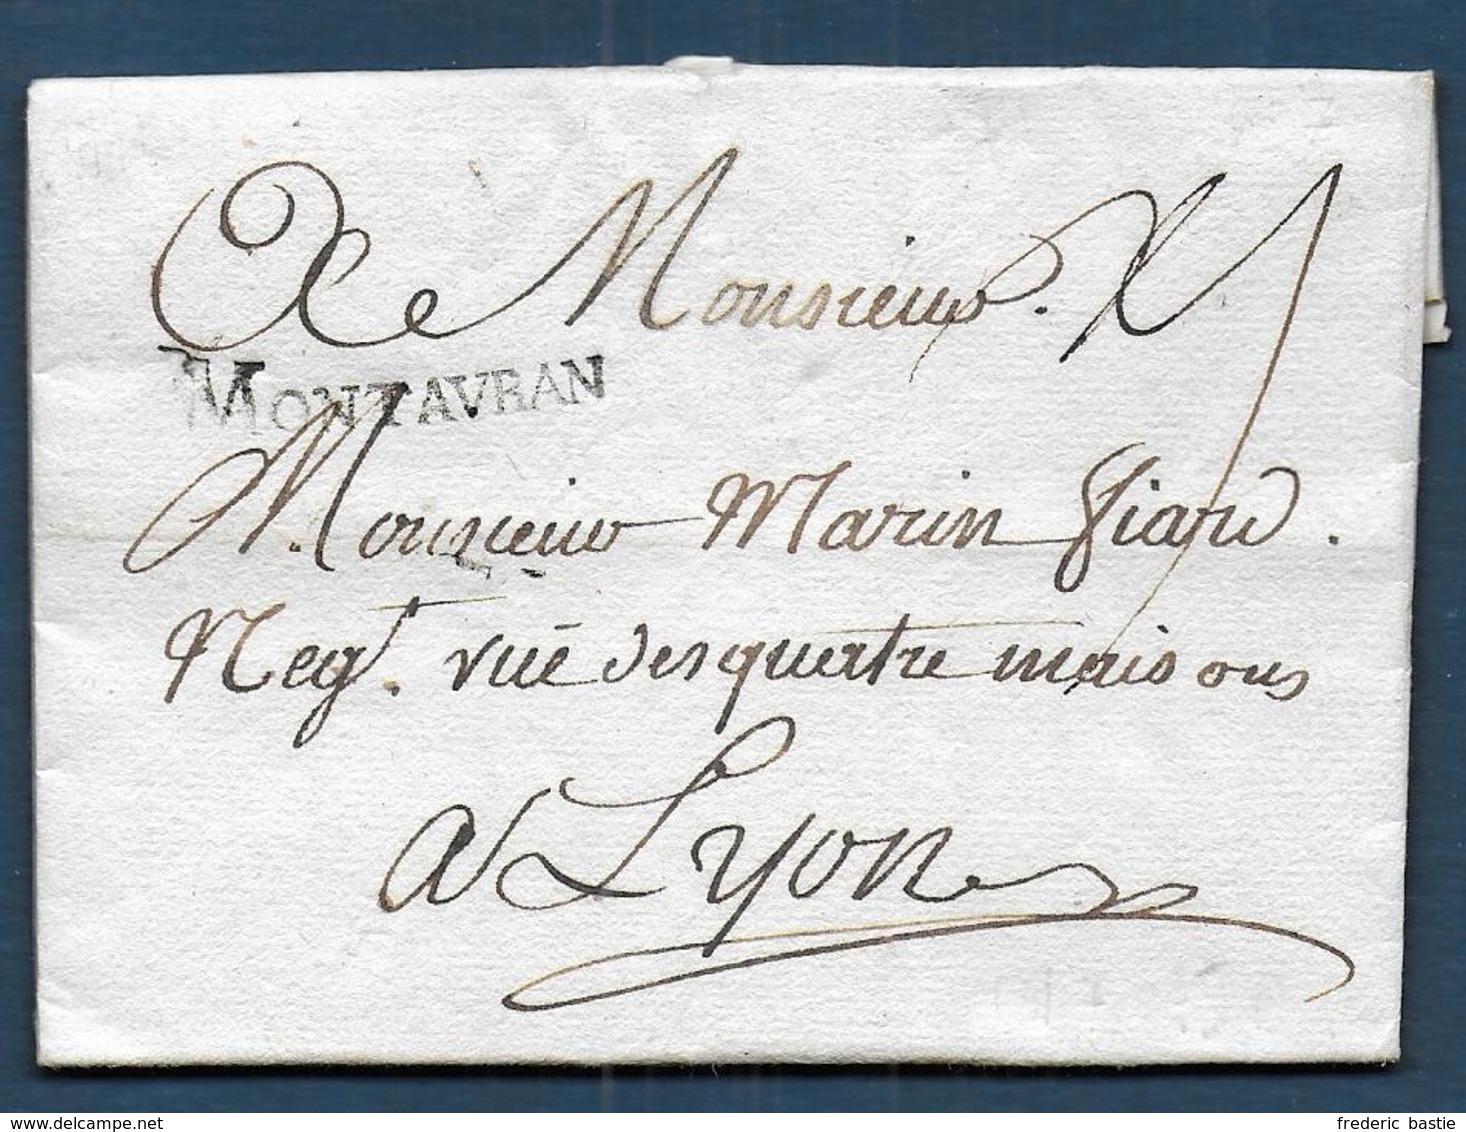 A Monsieur.
MONTAVBAN
Monsieur Marin fiard.
Negt. rüe des quatre maisons
a Lyon
delcampe.net
frederic bastie